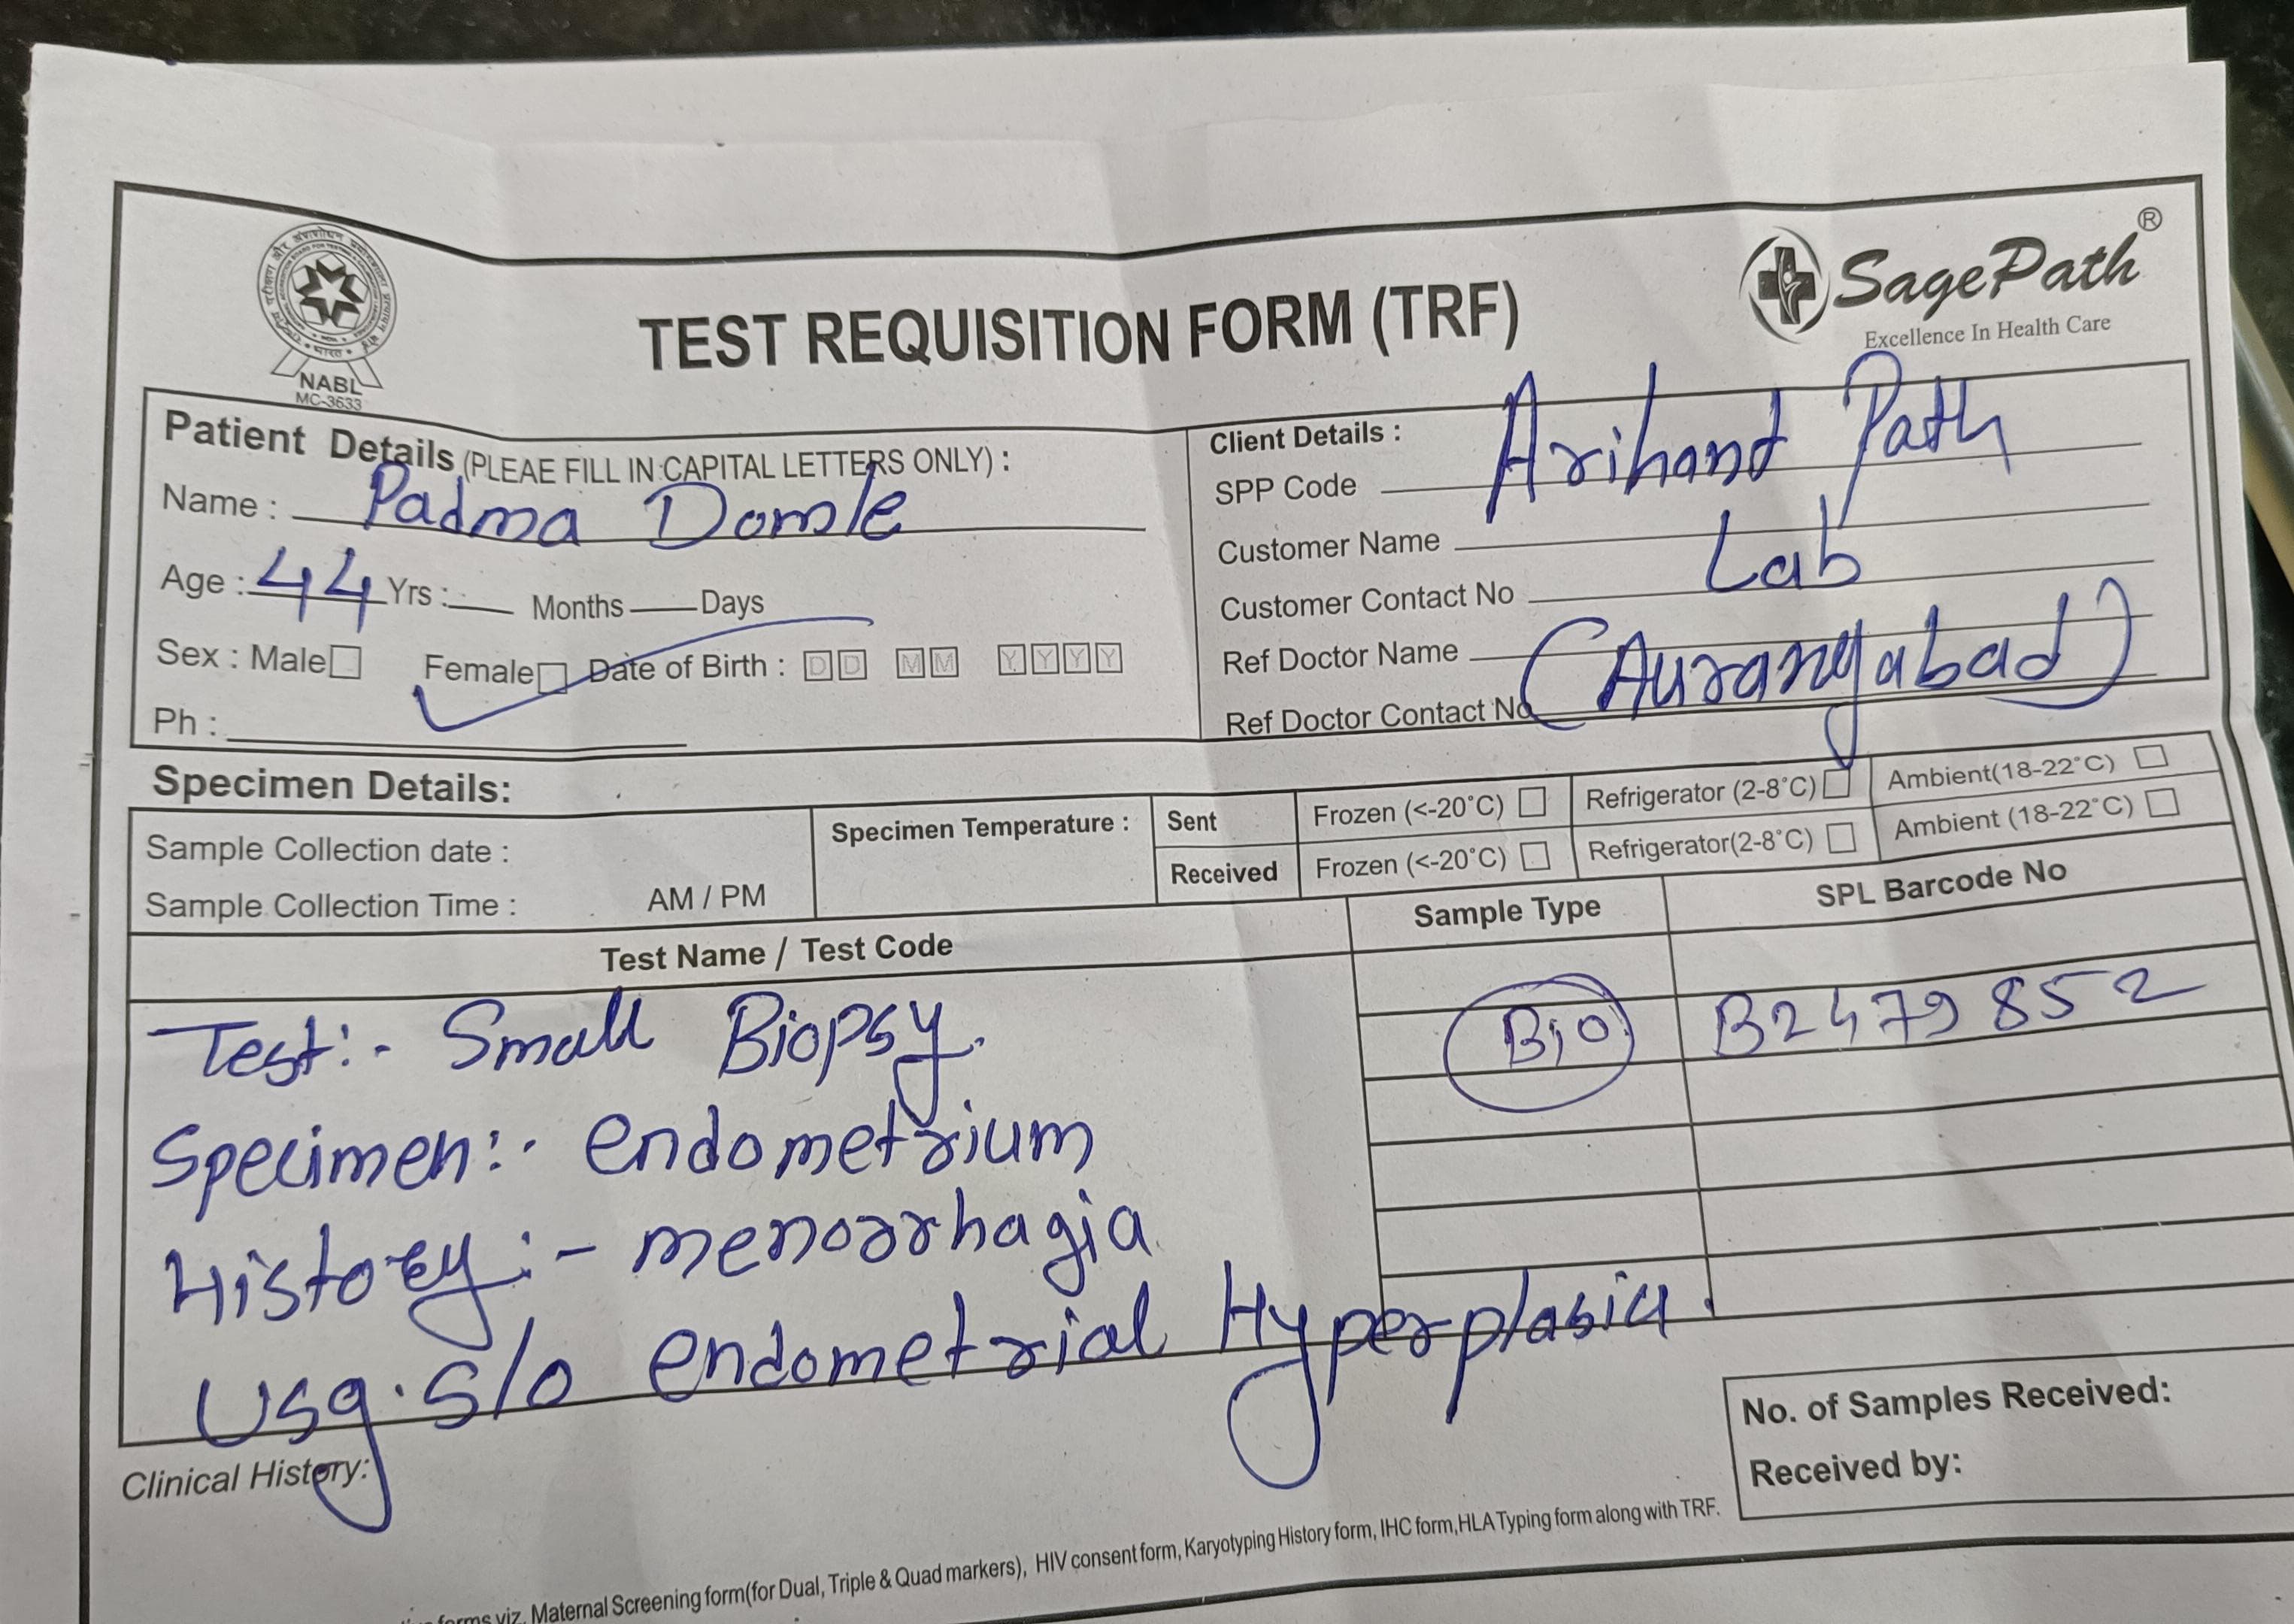 NABL
MC-3633
TEST REQUISITION FORM (TRF)
SagePath®
Excellence In Health Care
Patient Details (PLEAE FILL IN CAPITAL LETTERS ONLY) :
Name : Padma Domle
Age : 44 Yrs : Months Days
Sex : Male Female Date of Birth : DD MM YYYY
Ph :
Client Details :
SPP Code Arihant Path
Customer Name
Customer Contact No Lab
Ref Doctor Name
Ref Doctor Contact No (Aurangabad)
Specimen Details:
Sample Collection date :
Sample Collection Time : AM / PM
Specimen Temperature :
Sent Frozen (<-20°C) Refrigerator (2-8°C) Ambient(18-22°C)
Received Frozen (<-20°C) Refrigerator(2-8°C) Ambient (18-22°C)
Test Name / Test Code Sample Type SPL Barcode No
Test:- Small Biopsy. Bio B2479852
Specimen:- endometrium
History:- menorrhagia
Usg. S/o endometrial Hyperplasia.
Clinical History:
No. of Samples Received:
Received by:
forms viz. Maternal Screening form(for Dual, Triple & Quad markers), HIV consent form, Karyotyping History form, IHC form,HLA Typing form along with TRF.